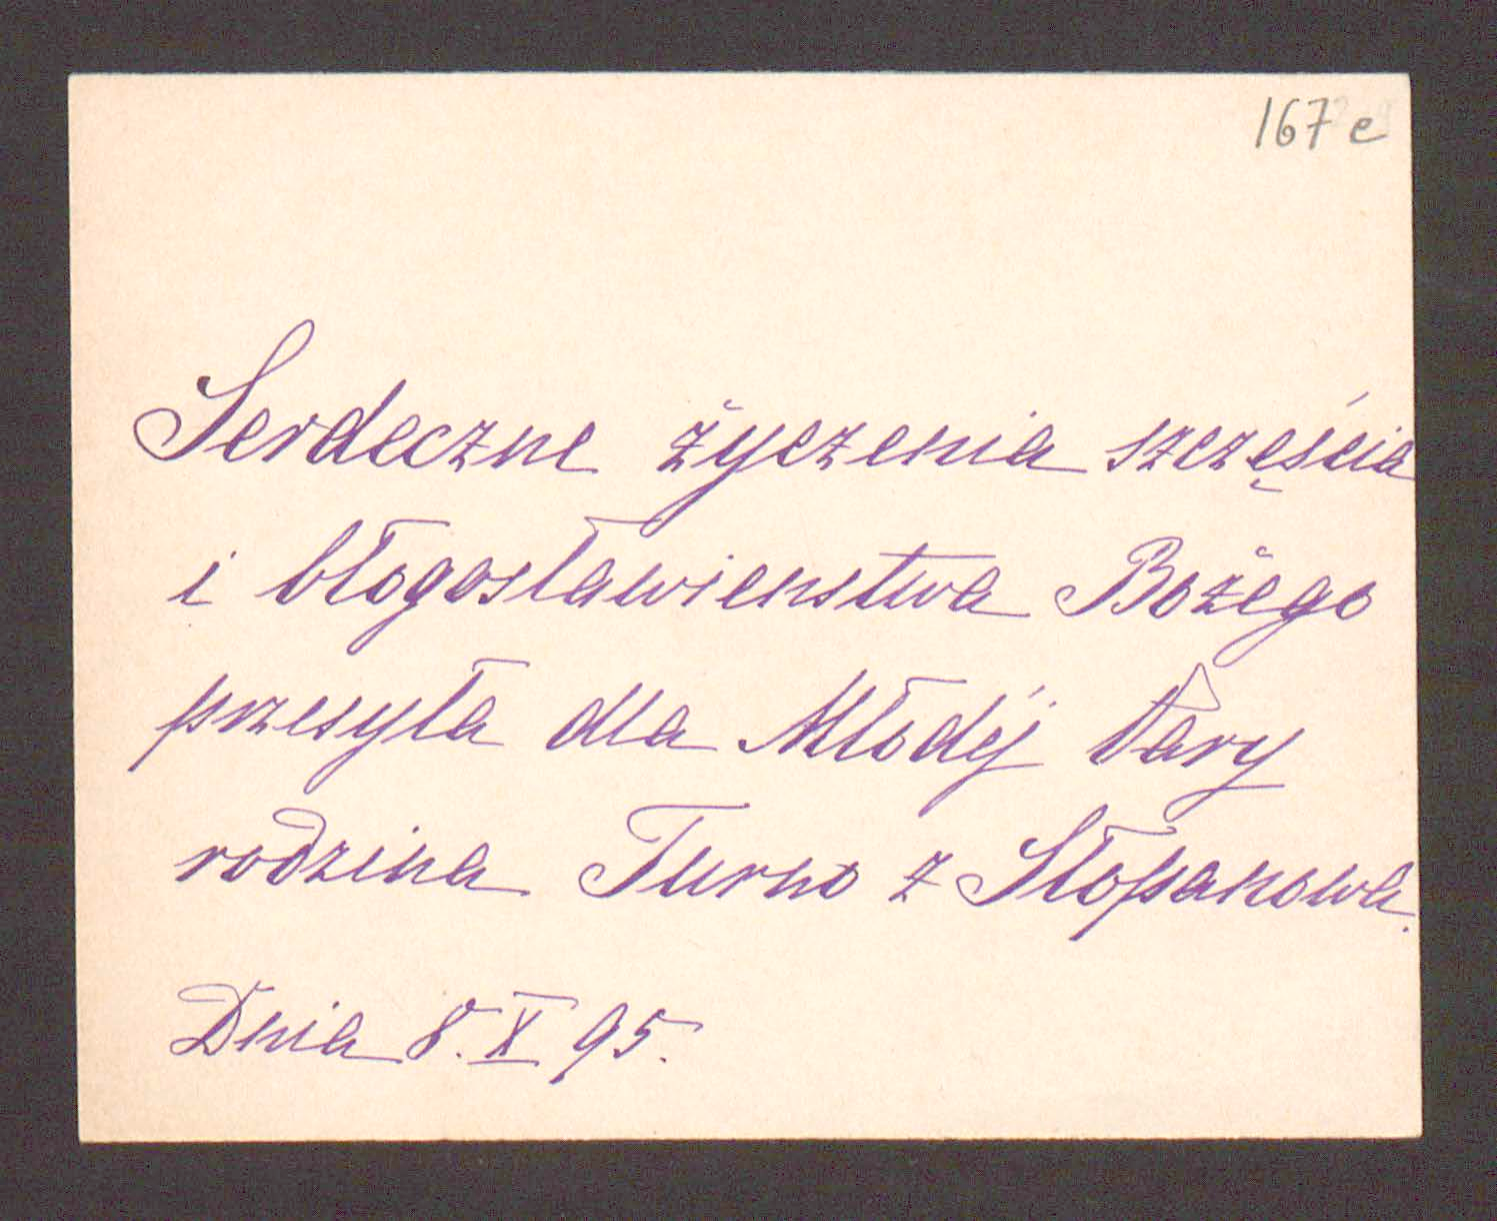 167 e
Serdeczne życzenia szczęścia
i błogosławienstwa Bożego
przesyła dla Młodéj Pary
rodzina Turno z Słopanowa.
Dnia 8. X 95.